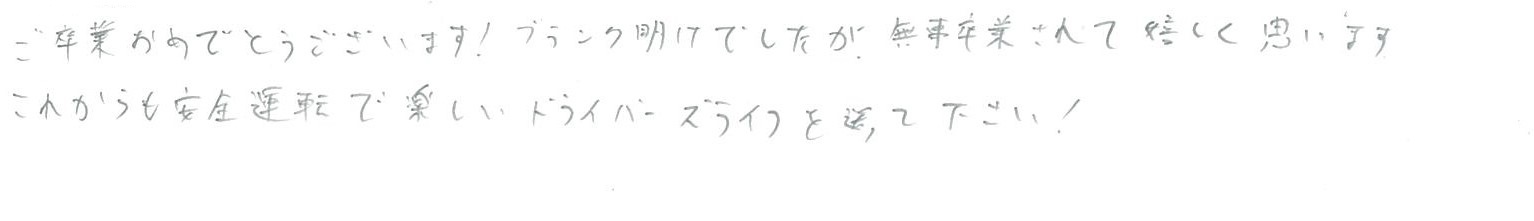 ご卒業おめでとうございます！ブランク明けでしたが、無事卒業されて嬉しく思います
これからも安全運転で楽しいドライバーズライフを送って下さい！